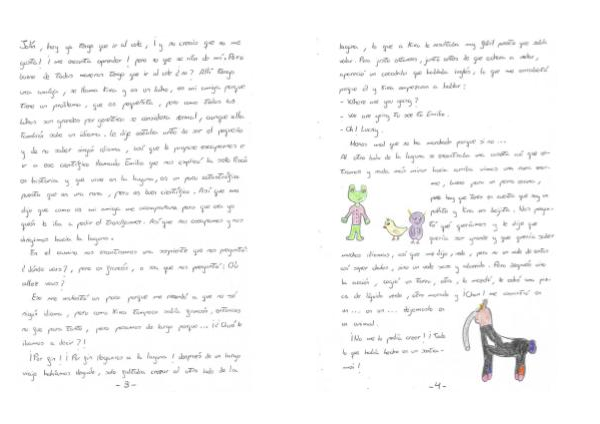 Jolín, hoy ya tengo que ir al cole, ¡y no creáis que no me
gusta! ¡me encanta aprender! pero es que se ríen de mí. Pero
bueno de todas maneras tengo que ir al cole ¿no? Allí tengo
una amiga, se llama Kira y es un lobo, es mi amiga porque
tiene un problema, que es pequeñita, pero como todos los
lobos son grandes por genética se considera normal, aunque ella
también sabe un idioma. Le dije estaba harto de ser el pequeño
y de no saber ningún idioma, así que le propuse escaparnos e
ir a ese científico llamado Emilio que nos explicó la seño Rocío
en historia y que vive en la laguna, es un poco
puesto que es una rana, pero es buen científico. Así que me
dijo que como es mi amiga me acompañaría pero que era yo
quien le iba a pedir el transformer. Así que nos escapamos y nos
dirigimos hacia la laguna.
En el camino nos encontramos una serpiente que nos preguntó
¿dónde vais?, pero en francés, o sea, que nos preguntó: Où
allez vous?
Eso me molestó un poco porque me recordó a que no sé
ningún idioma, pero como Kira tampoco sabía francés, entonces
no que para tanto, pero pasamos de largo porque... ¡¿Qué le
íbamos a decir?!
¡Por fin! ¡Por fin llegamos a la laguna! después de un largo
viaje habíamos llegado, solo faltaba cruzar al otro lado de la
- 3 -
laguna, lo que a Kira le resultaba muy fácil puesto que sabía
volar. Pero justo entonces, justo antes de que echara a volar,
apareció un cocodrilo que hablaba inglés, lo que me
porque él y Kira empezaron a hablar:
- Where are you going?
- We are going to see to Emilio.
- Oh! Lucky.
Menos mal que no ha mordado porque si no...
Al otro lado de la laguna se encontraba una casita así que en-
tramos y nada más mirar hacia arriba vimos una rana enor-
me, bueno para un perro enano,
pero hay que tener en cuenta que soy un
y Kira es bajita. Nos pregun-
tó qué queríamos y le dije que
quería ser grande y que quería saber
muchos idiomas, así que me dijo, vale, pero no un vale de estar
así súper dulce, sino un vale seco y aburrido. Pero después vino
la acción, cogió un tarro, otro, lo mezcló, le echó una piz-
ca de líquido verde, otro morado y ¡Chan! me convirtió en
un... en un... ¡dejémoslo en
un animal.
¡No me lo podía creer! ¡Todo
lo que había hecho en un
mal!
- 4 -